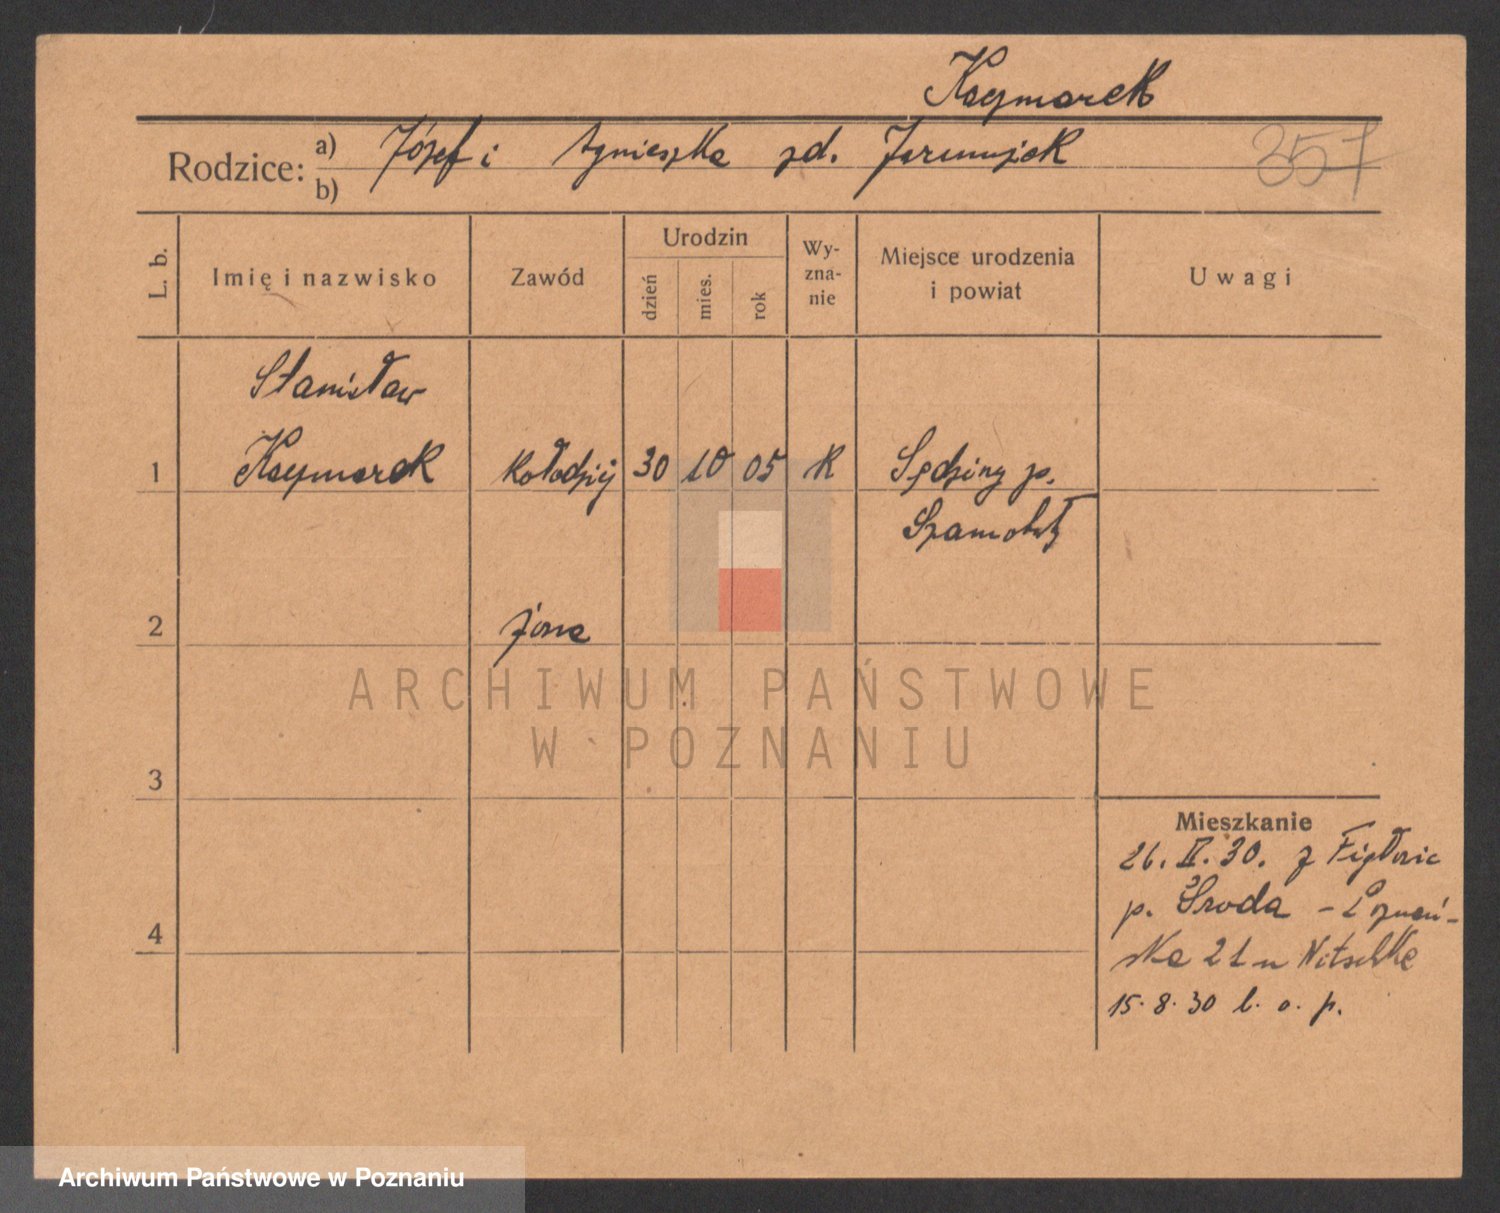 Kaczmarek
Rodzice: a) Józef i Agnieszka zd.
b)
357
L. b.
Imię i nazwisko
Zawód
Urodzin
dzień
mies.
rok
Wy-
zna-
nie
Miejsce urodzenia
i powiat
Uwagi
Stanisław
1 Kaczmarek kołodziej 30 10 05 K Sędziny p.
Szamotuły
2 żona
3
4
Mieszkanie
26. II. 30. z
p. Środa – Poznań-
ska 21 u Nitschke
15. 8. 30 b. o. p.
ARCHIWUM PAŃSTWOWE
W POZNANIU
Archiwum Państwowe w Poznaniu